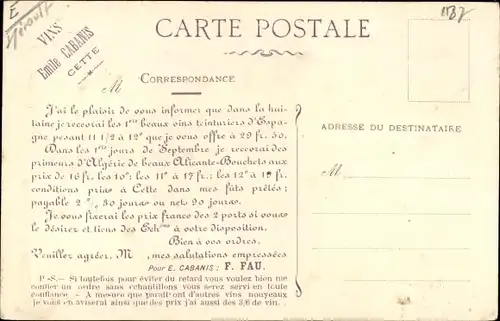 E
Hérault
VINS
Emile CABANIS
CETTE
CARTE POSTALE
M
CORRESPONDANCE
J'ai le plaisir de vous informer que dans la hui-
taine je recevrai les 1ers beaux vins teinturiers d'Espa-
gne pesant 11 1/2 à 12° que je vous offre à 29 fr. 50.
Dans les 1ers jours de Septembre je recevrai des
primeurs d'Algérie de beaux Alicante-Bouchets aux
prix de 16 fr. les 10°; les 11° à 17 fr.; les 12° à 18 fr.
conditions pris à Cette dans mes fûts prêtés;
payable 2% 30 jours ou net 90 jours.
Je vous fixerai les prix franco des 2 ports si vous
le désirez et tiens des Echons à votre disposition.
Bien à vos ordres.
Veuillez agréer, M , mes salutations empressées
Pour E. CABANIS : F. FAU.
P -S.— Si toutefois pour éviter du retard vous voulez bien me
confier un ordre sans échantillons vous serez servi en toute
confiance. - A mesure que paraît ont d'autres vins nouveaux
je vous en aviserai ainsi que des prix j'ai aussi des 3/6 de vin.
ADRESSE DU DESTINATAIRE
M